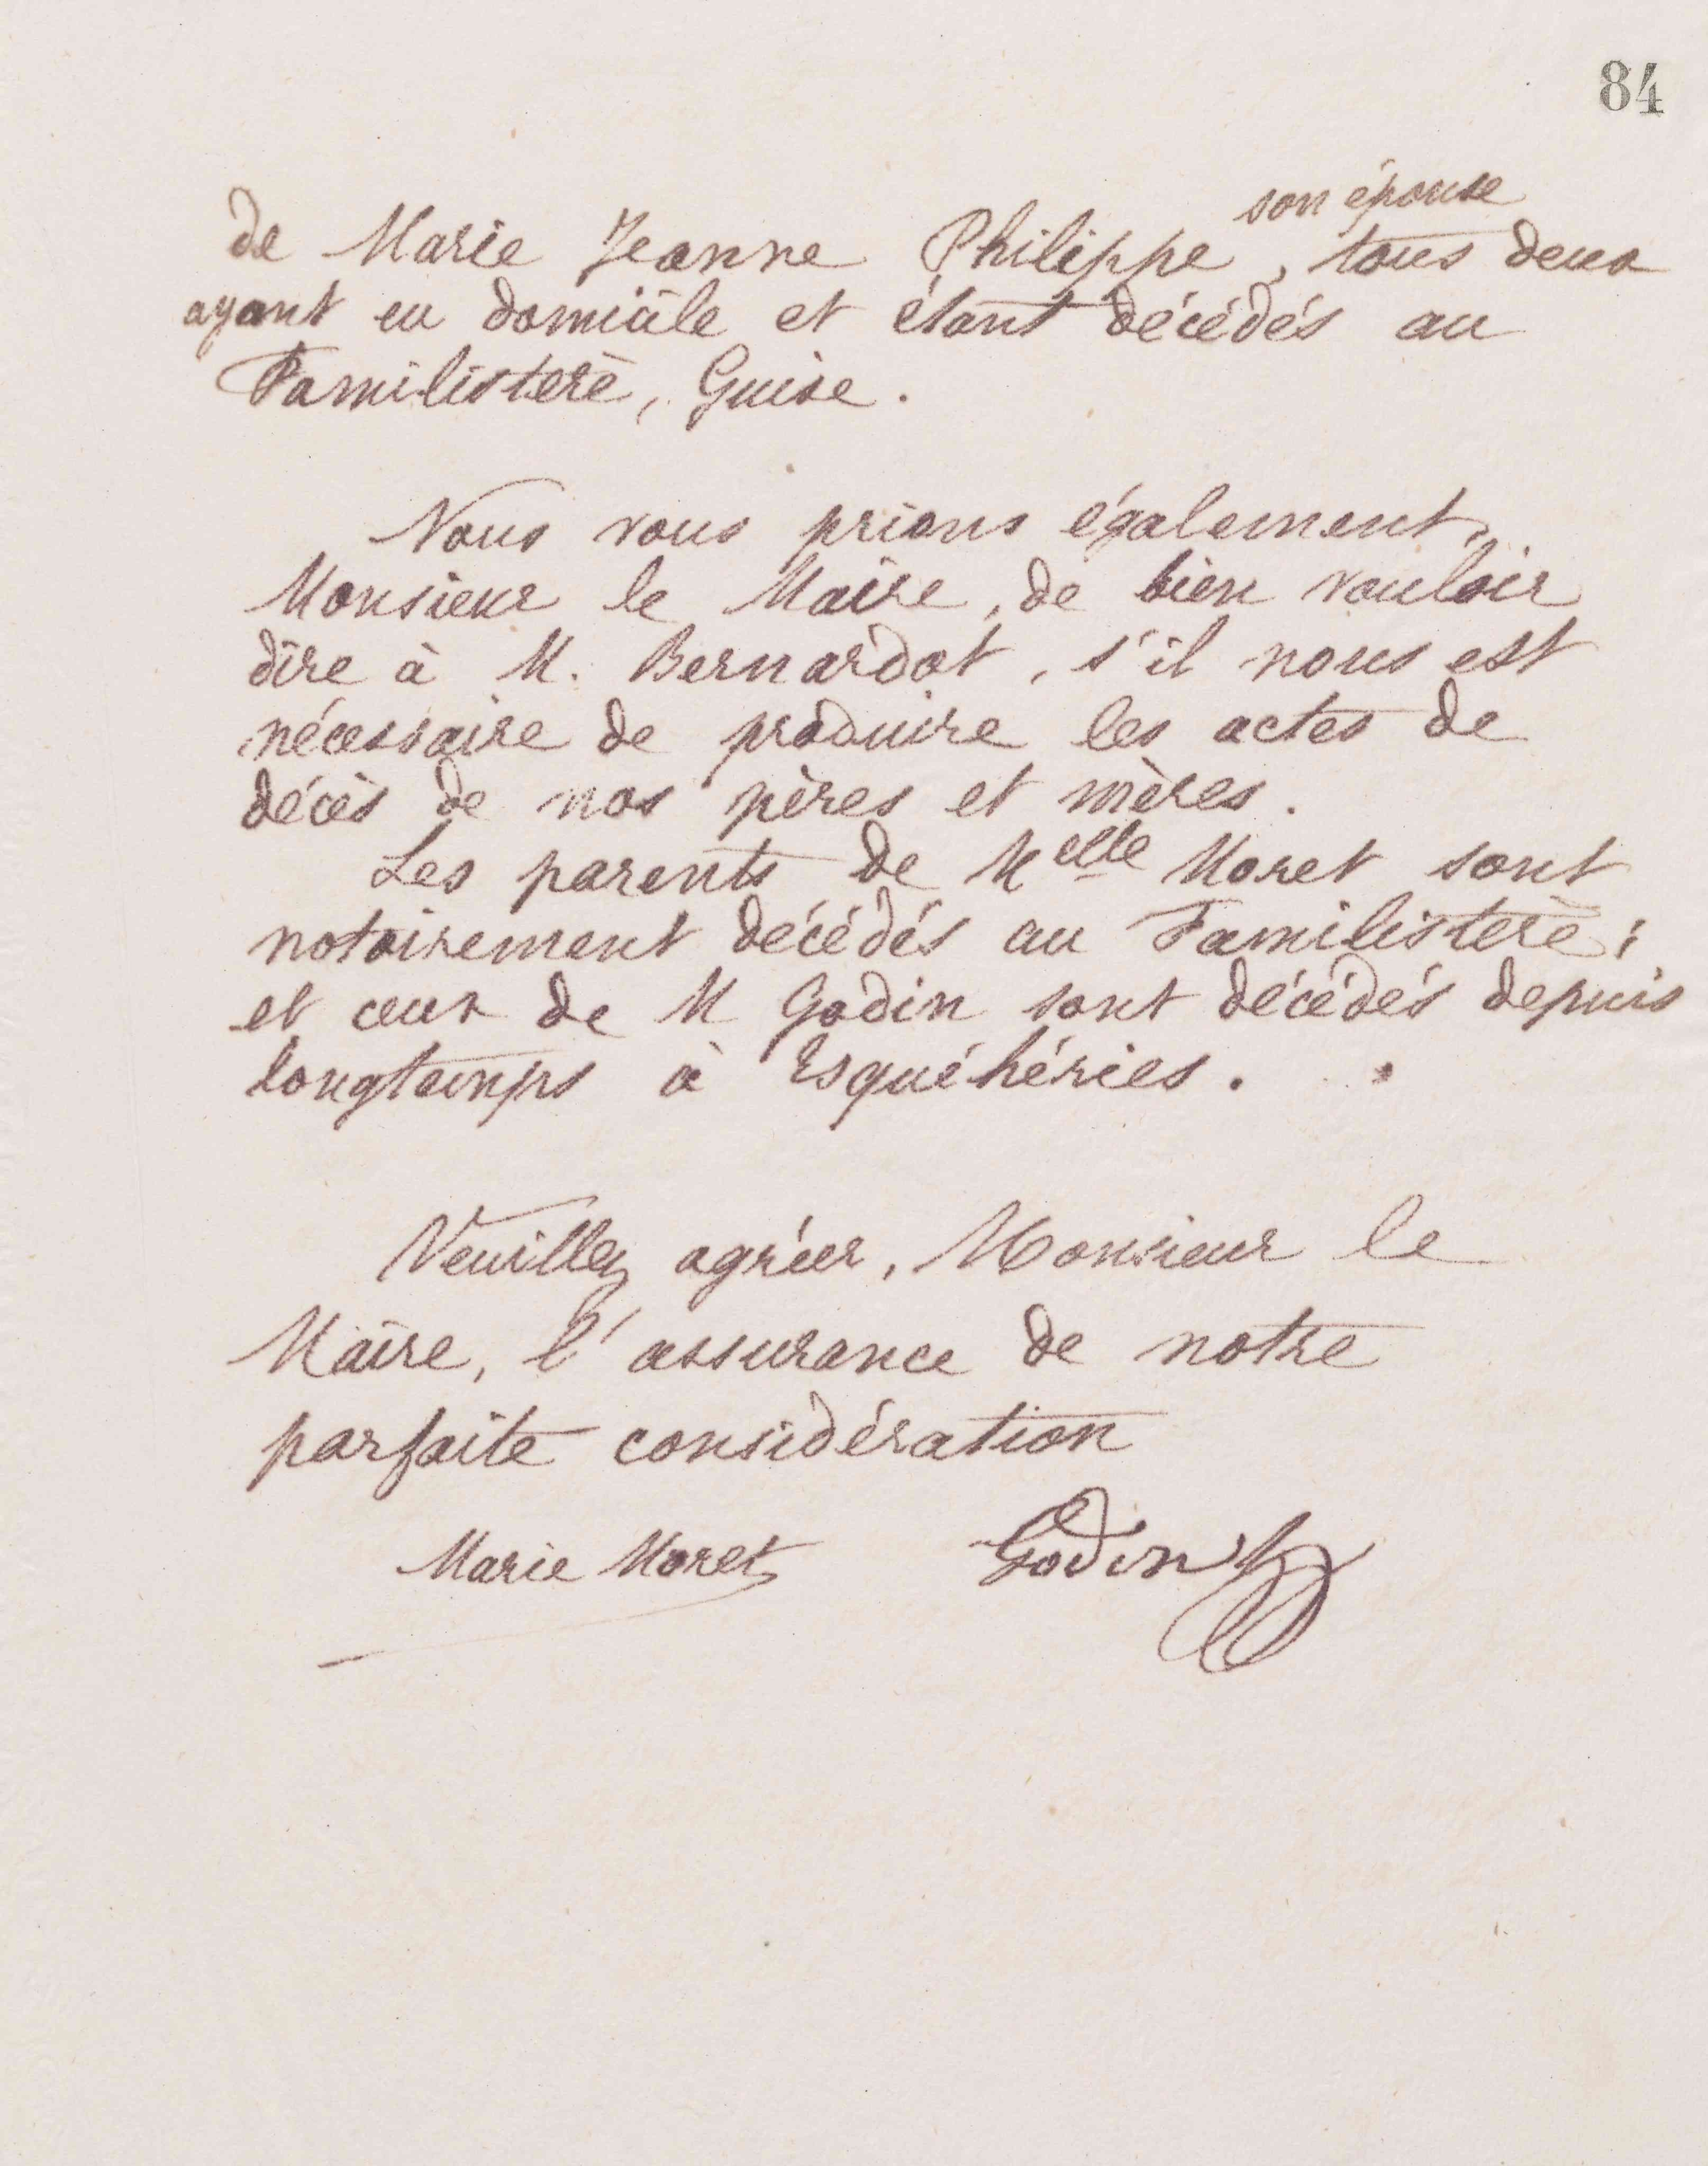 84
son épouse
de Marie Jeanne Philippe, tous deux
ayant eu domicile et étant décédés au
Familistère, Guise.
Nous vous prions également,
Monsieur le Maire, de bien vouloir
dire à M. Bernardot, s'il nous est
nécessaire de produire les actes de
décès de nos pères et mères.
Les parents de Melle Moret sont
notoirement décédés au Familistère;
et ceux de M Godin sont décédés depuis
longtemps à Esquéhéries.
Veuillez agréer, Monsieur le
Maire, l'assurance de notre
parfaite considération
Marie Moret Godin